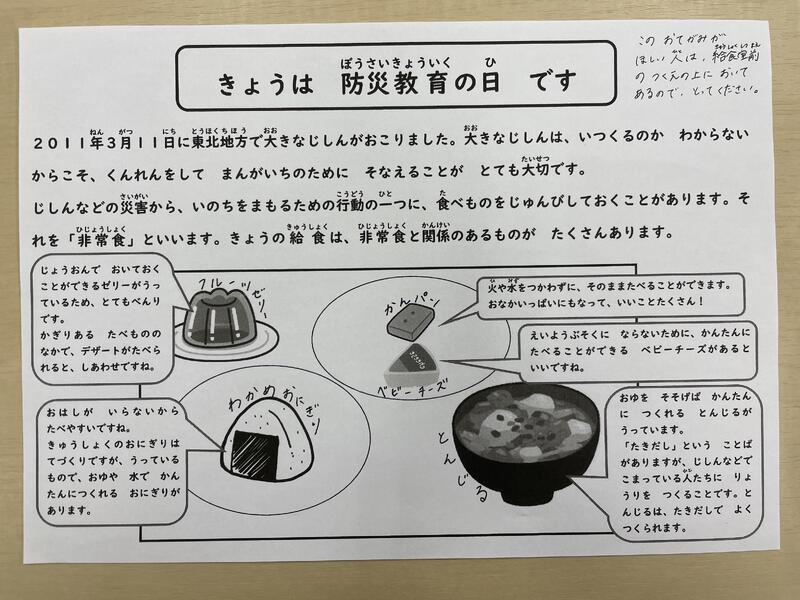 きょうは 防災教育の日 です
ぼうさいきょういく ひ
このおてがみが
ほしい人は、給食室前
のつくえの上において
あるので、とってください。
２０１１年３月１１日に東北地方で大きなじしんがおこりました。大きなじしんは、いつくるのか わからない
からこそ、くんれんをして まんがいちのために そなえることが とても大切です。
じしんなどの災害から、いのちをまもるための行動の一つに、食べものをじゅんびしておくことがあります。そ
れを「非常食」といいます。きょうの給食は、非常食と関係のあるものが たくさんあります。
じょうおんで おいておく
ことができるゼリーがうっ
ているため、とてもべんり
です。
かぎりある たべものの
なかで、デザートがたべら
れると、しあわせですね。
フルーツゼリー
かんパン
火や水をつかわずに、そのままたべることができます。
おなかいっぱいにもなって、いいことたくさん！
ベビーチーズ
えいようぶそくに ならないために、かんたんに
たべることができる ベビーチーズがあると
いいですね。
おはしが いらないから
たべやすいですね。
きゅうしょくのおにぎりは
てづくりですが、うっている
もので、おゆや 水で かん
たんにつくれる おにぎりが
あります。
わかめおにぎり
とんじる
おゆを そそげば かんたん
に つくれる とんじるが
うっています。
「たきだし」という ことば
がありますが、じしんなどで
こまっている人たちに りょ
うりを つくることです。と
んじるは、たきだしで よく
つくられます。